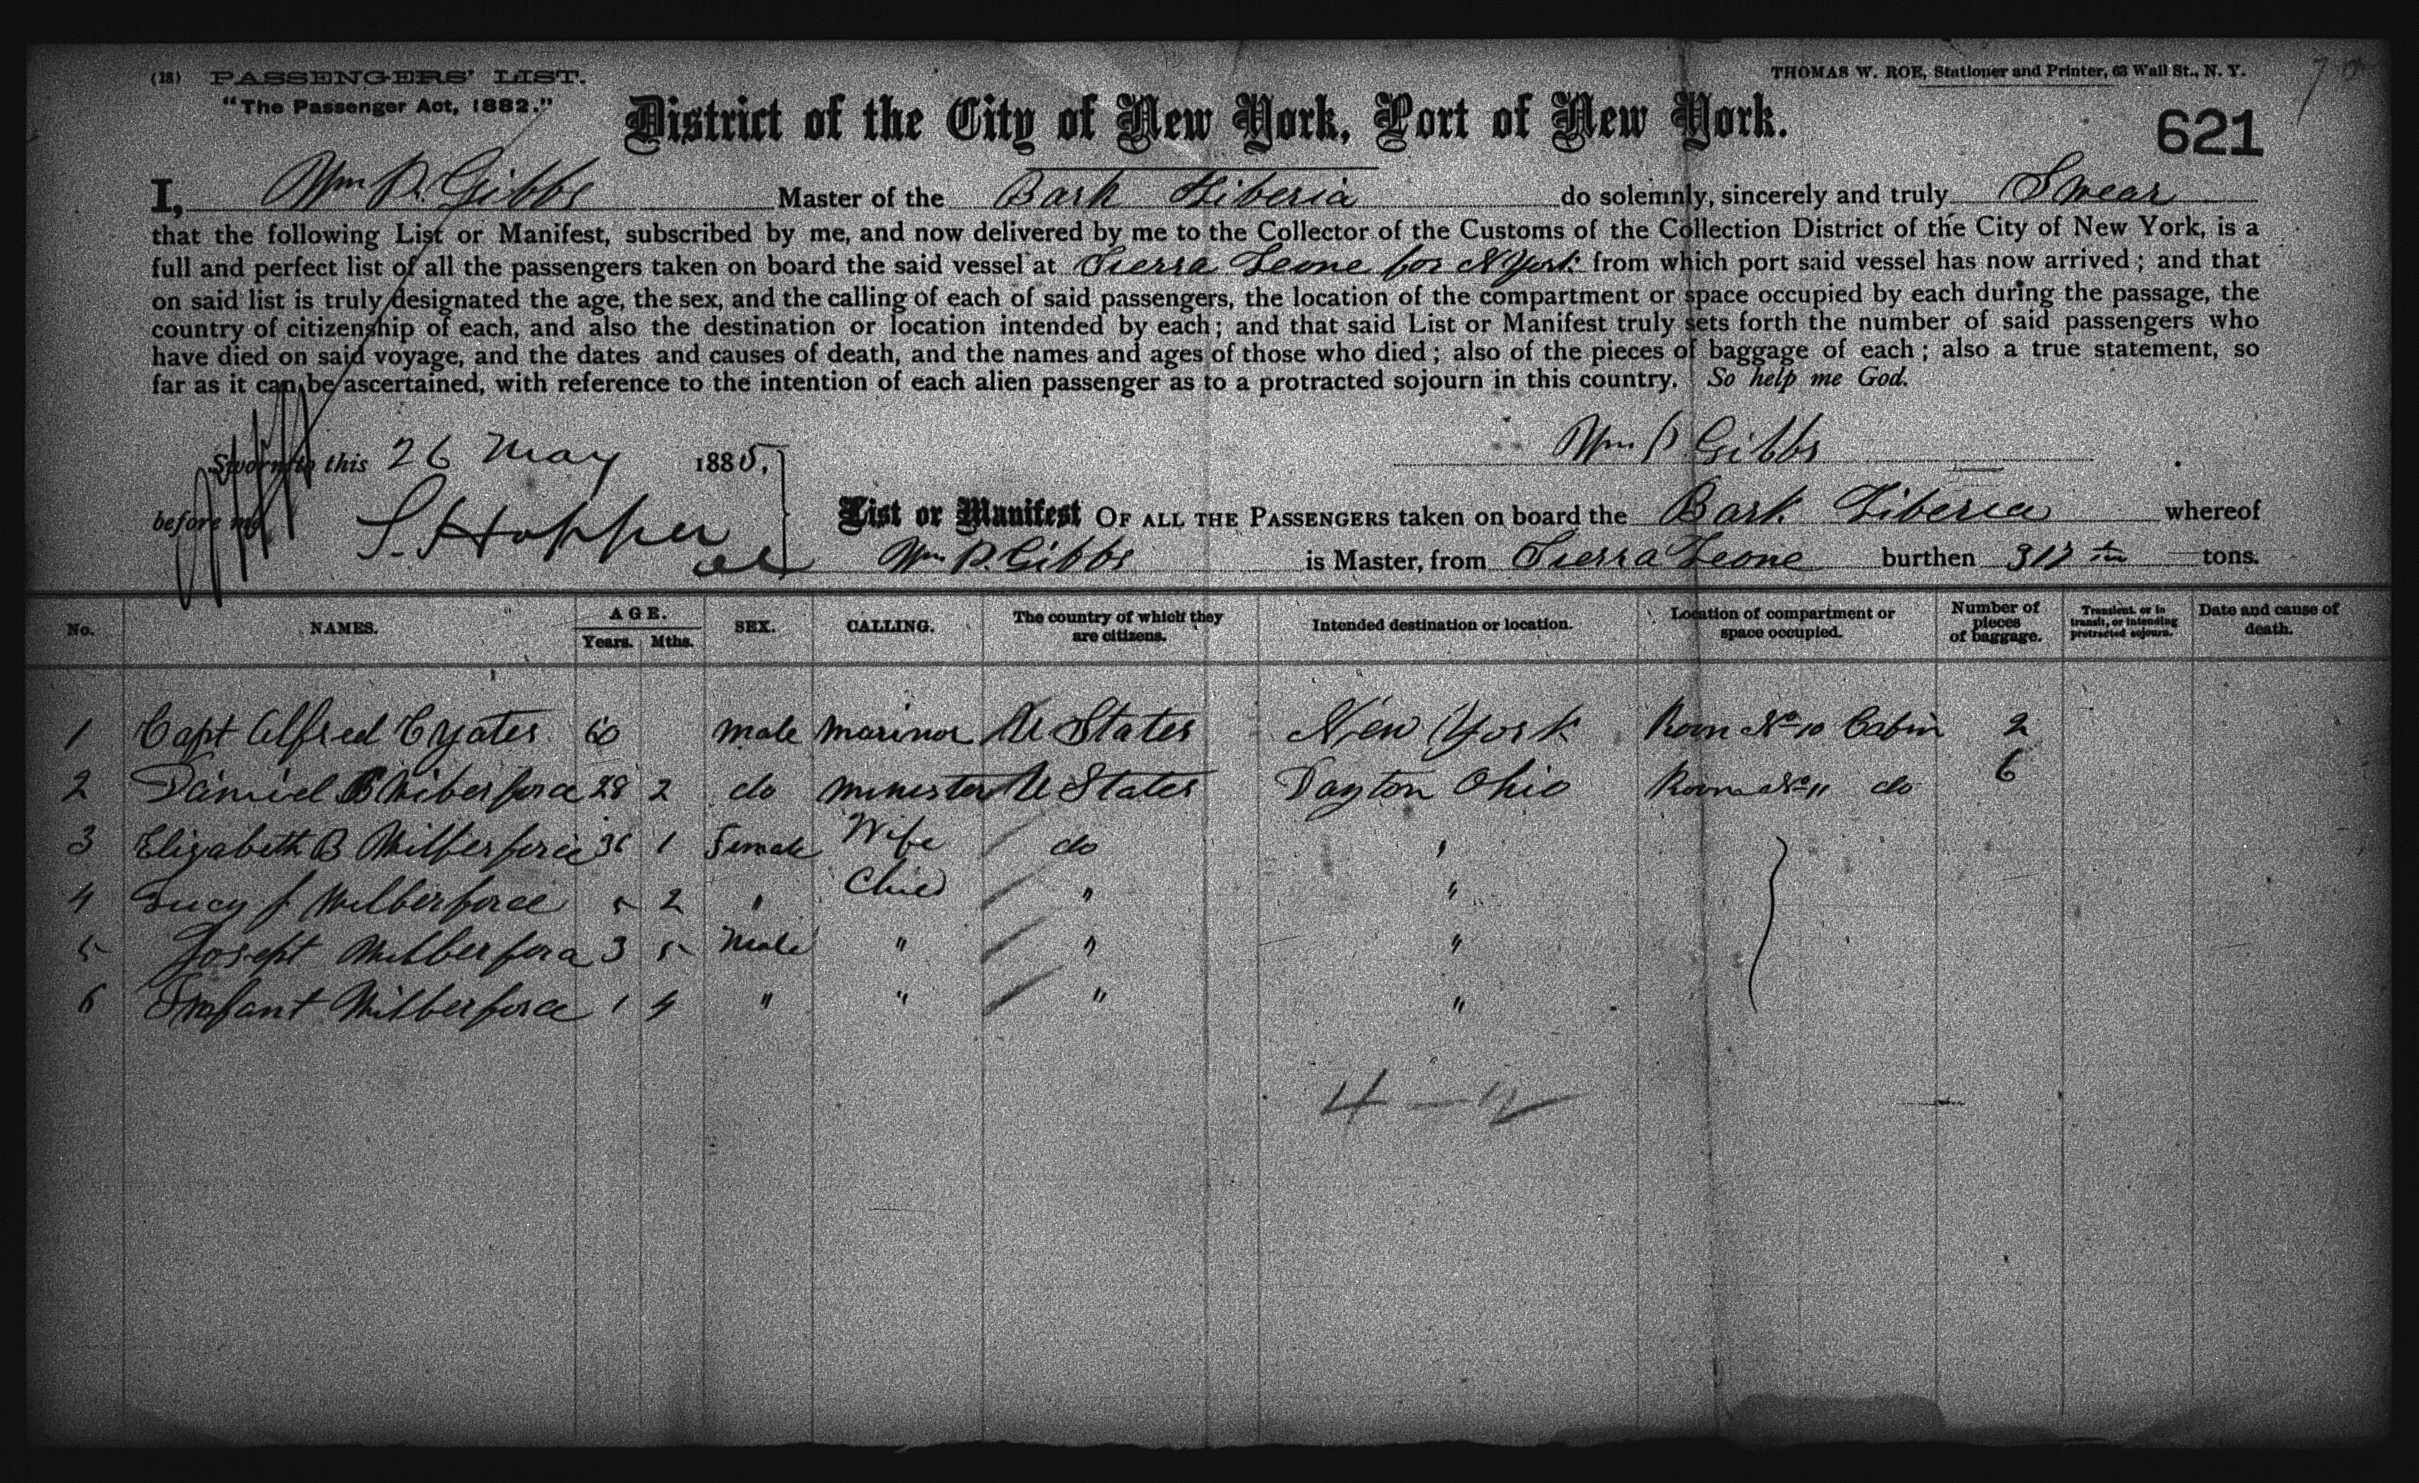 (18) PASSENGERS' LIST.
THOMAS W. ROE, Stationer and Printer, 63 Wall St., N. Y.
"The Passenger Act, 1882."
District of the City of New York, Port of New York.
621
I, Wm P. Gibbs Master of the Bark Liberia do solemnly, sincerely and truly Swear
that the following List or Manifest, subscribed by me, and now delivered by me to the Collector of the Customs of the Collection District of the City of New York, is a
full and perfect list of all the passengers taken on board the said vessel at Sierra Leone for N York from which port said vessel has now arrived; and that
on said list is truly designated the age, the sex, and the calling of each of said passengers, the location of the compartment or space occupied by each during the passage, the
country of citizenship of each, and also the destination or location intended by each; and that said List or Manifest truly sets forth the number of said passengers who
have died on said voyage, and the dates and causes of death, and the names and ages of those who died; also of the pieces of baggage of each; also a true statement, so
far as it can be ascertained, with reference to the intention of each alien passenger as to a protracted sojourn in this country. So help me God.
Sworn to this 26 May 1885,
Wm P. Gibbs
before me S. Hopper
List or Manifest OF ALL THE PASSENGERS taken on board the Bark Liberia whereof
Wm P. Gibbs is Master, from Sierra Leone burthen tons.
No. NAMES. AGE. Years. Mths. SEX. CALLING. The country of which they are citizens. Intended destination or location. Location of compartment or space occupied. Number of pieces of baggage. Transient, or in transit, or intending protracted sojourn. Date and cause of death.
1 Capt Alfred C Yates 60 male marinor U States New York Room No 10 Cabin 2
2 Daniel Wilberforce 28 2 do minester U States Dayton Ohio Room No 11 do 6
3 Elizabeth B Wilberforce 1 Female Wife do "
4 Lucy J Wilberforce 5 2 " Child " "
5 Joseph Wilberforce 3 5 Male " " "
6 Infant Wilberforce 1 4 " " " "